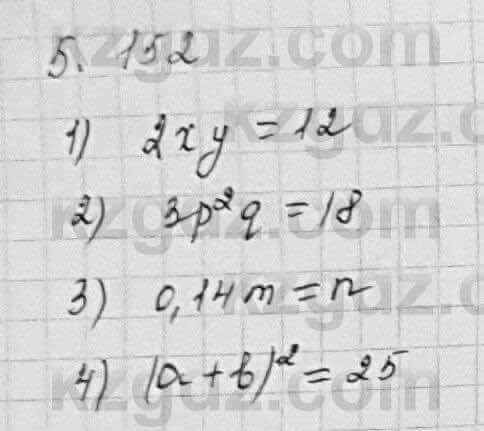 5.152
1) 2xy = 12
2) 3p²q = 18
3) 0,14m = n
4) (a + b)² = 25
kzgdz.com